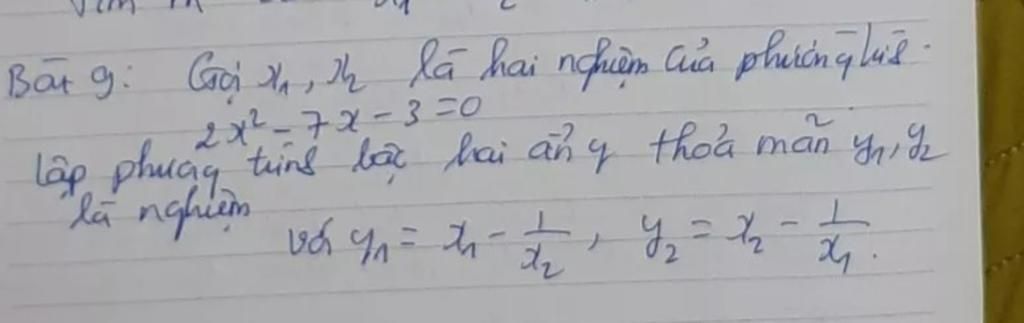 Bài 9: Gọi x₁, x₂ là hai nghiệm của phương trình.
2x² - 7x - 3 = 0
Lập phương trình bậc hai ẩn y thỏa mãn y₁, y₂
là nghiệm
với y₁ = x₁ - 1/x₂, y₂ = x₂ - 1/x₁.